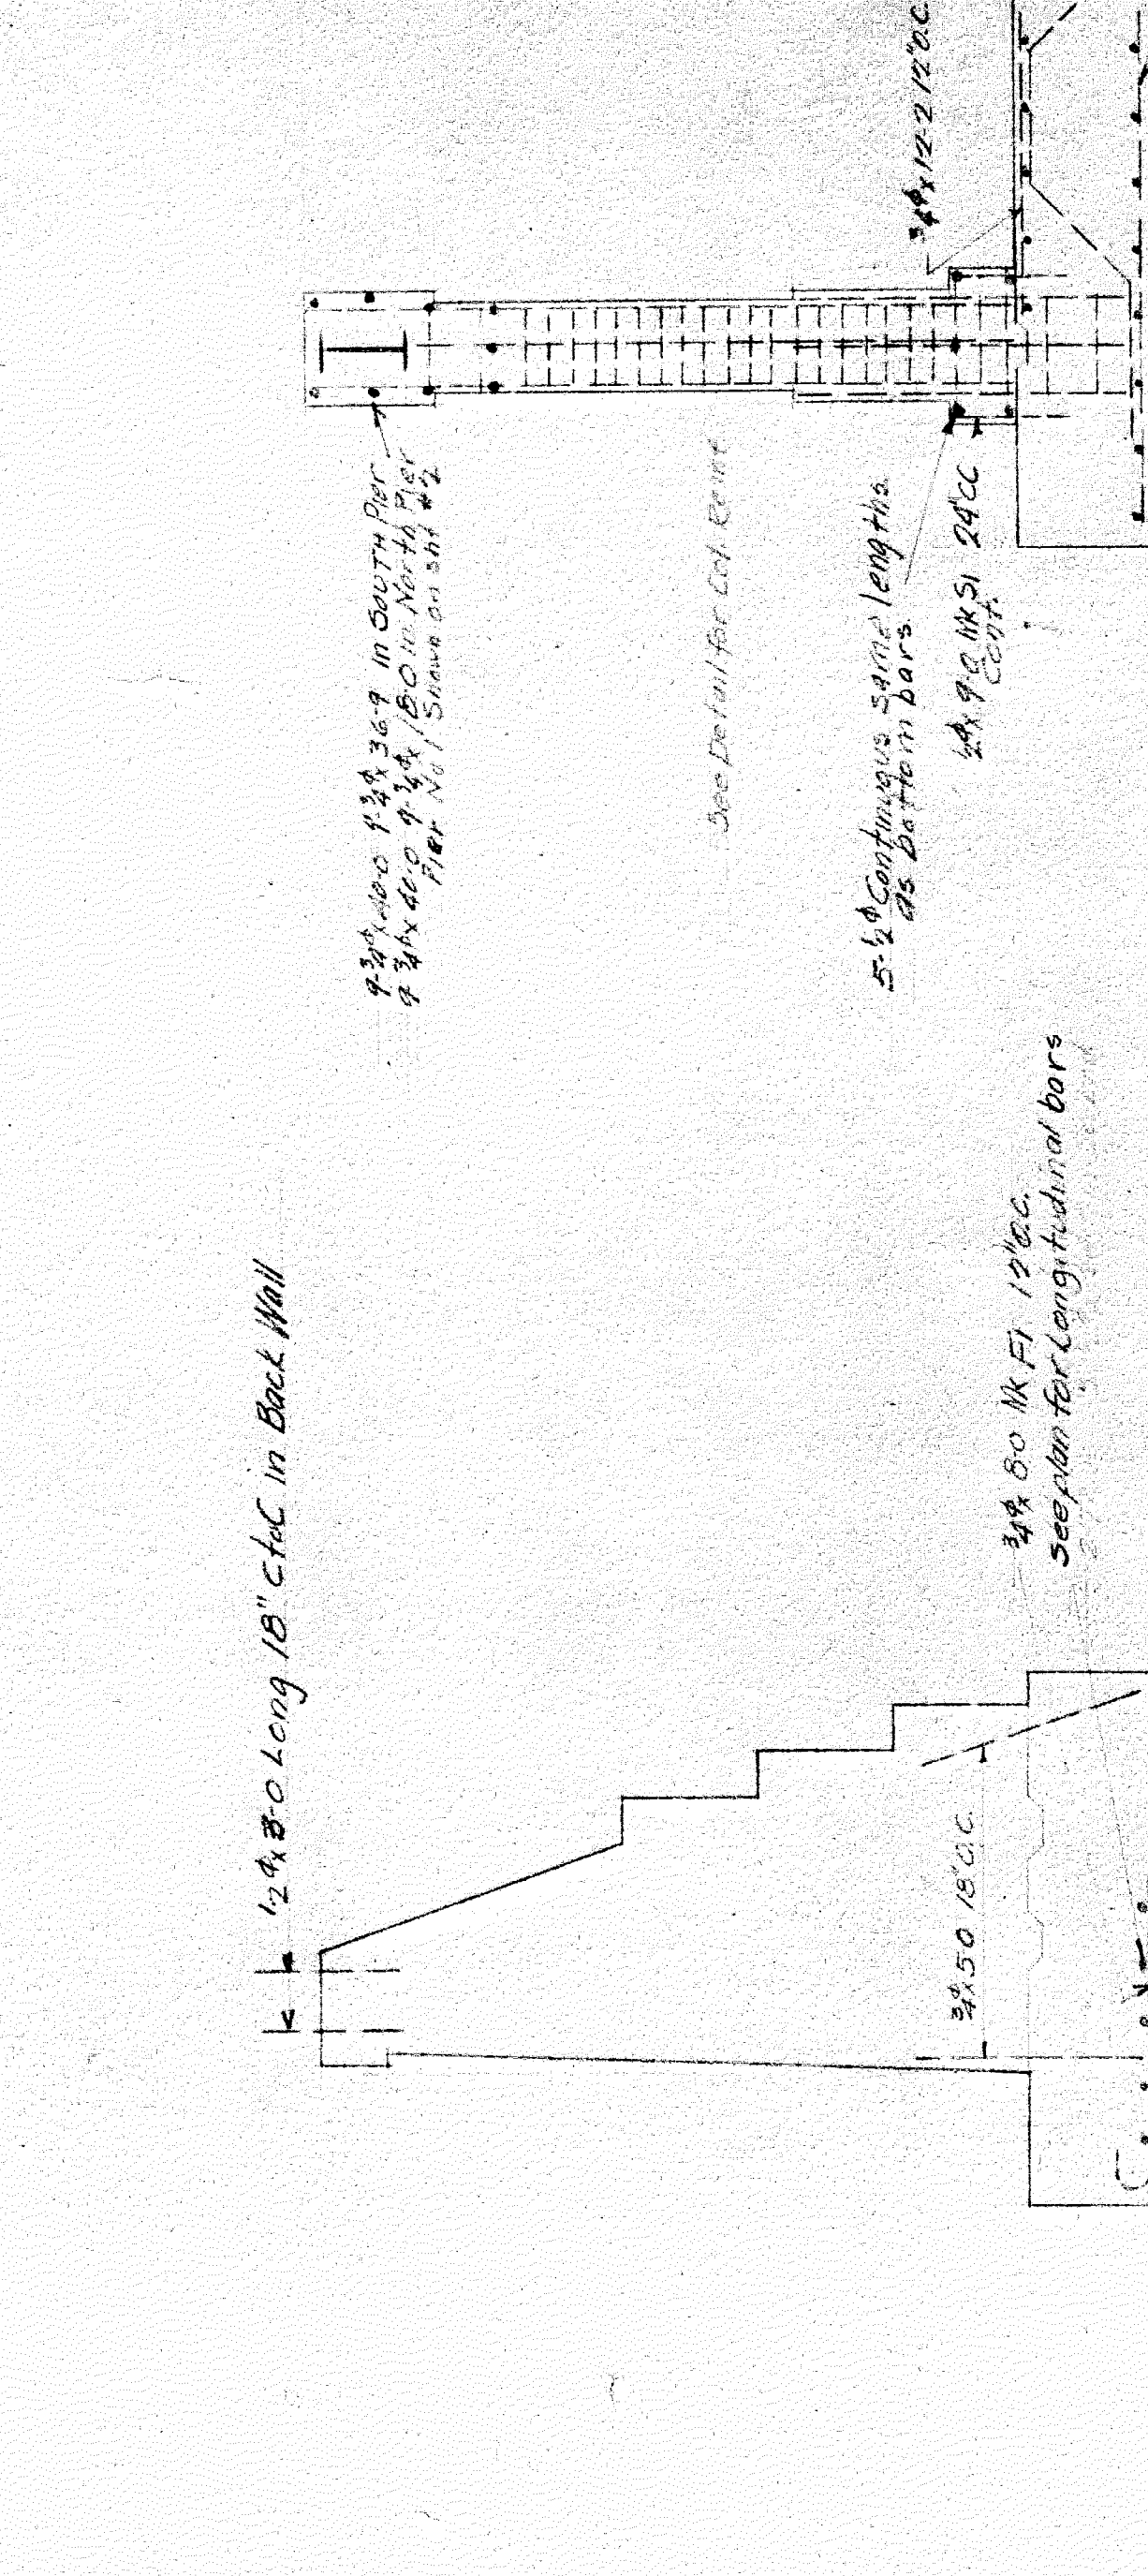 1-2 Φ x 3-0 Long 18" C to C in Back Wall
9-3/4Φ x 40-0 9-3/4Φ x 36-9 in SOUTH Pier
9-3/4Φ x 40-0 9-3/4Φ x 18-0 in North Pier
Pier No 1 Shown on sht #2
See Detail for Col. Reinf
5-1/2Φ Continuous same lengths
as bottom bars.
1/2Φ x 9-0 MK S1 24"CC
Cont.
3/4Φ x 12-2 12"O.C.
3/4Φ x 8-0 MK F1 12"O.C.
See plan for Longitudinal bars
3/4Φ x 5-0 18"O.C.